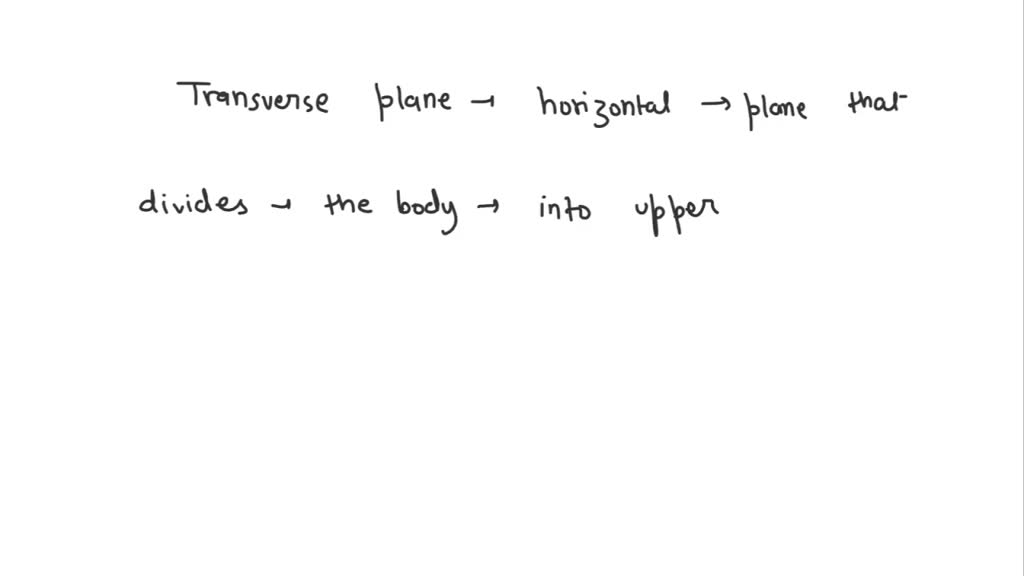 Transverse plane → horizontal → plane that
divides → the body → into upper